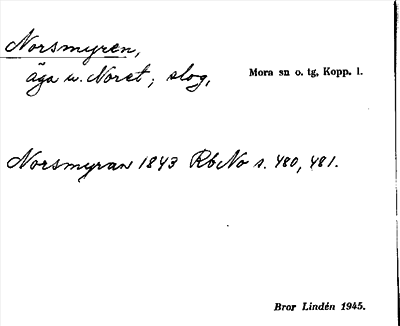 Norsmyren,
äga u. Noret; slog, Mora sn o. tg, Kopp. l.
Norsmyran 1843 RbNo s. 480, 481.
Bror Lindén 1945.